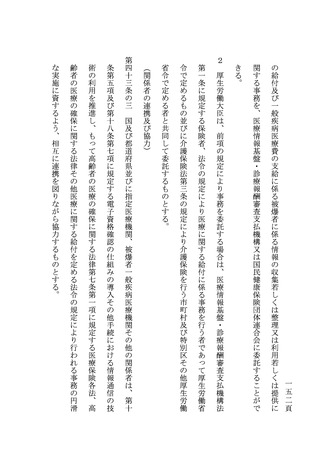 一五二頁
の給付及び一般疾病医療費の支給に係る被爆者に係る情報の収集若しくは整理又は利用若しくは提供に
関する事務を、医療情報基盤・診療報酬審査支払機構又は国民健康保険団体連合会に委託することがで
きる。
２　厚生労働大臣は、前項の規定により事務を委託する場合は、医療情報基盤・診療報酬審査支払機構法
第一条に規定する保険者、法令の規定により医療に関する給付に係る事務を行う者であって厚生労働省
令で定めるもの並びに介護保険法第三条の規定により介護保険を行う市町村及び特別区その他厚生労働
省令で定める者と共同して委託するものとする。
（関係者の連携及び協力）
第四十三条の三　国及び都道府県並びに指定医療機関、被爆者一般疾病医療機関その他の関係者は、第十
条第五項及び第十八条第七項に規定する電子資格確認の仕組みの導入その他手続における情報通信の技
術の利用を推進し、もって高齢者の医療の確保に関する法律第七条第一項に規定する医療保険各法、高
齢者の医療の確保に関する法律その他医療に関する給付を定める法令の規定により行われる事務の円滑
な実施に資するよう、相互に連携を図りながら協力するものとする。